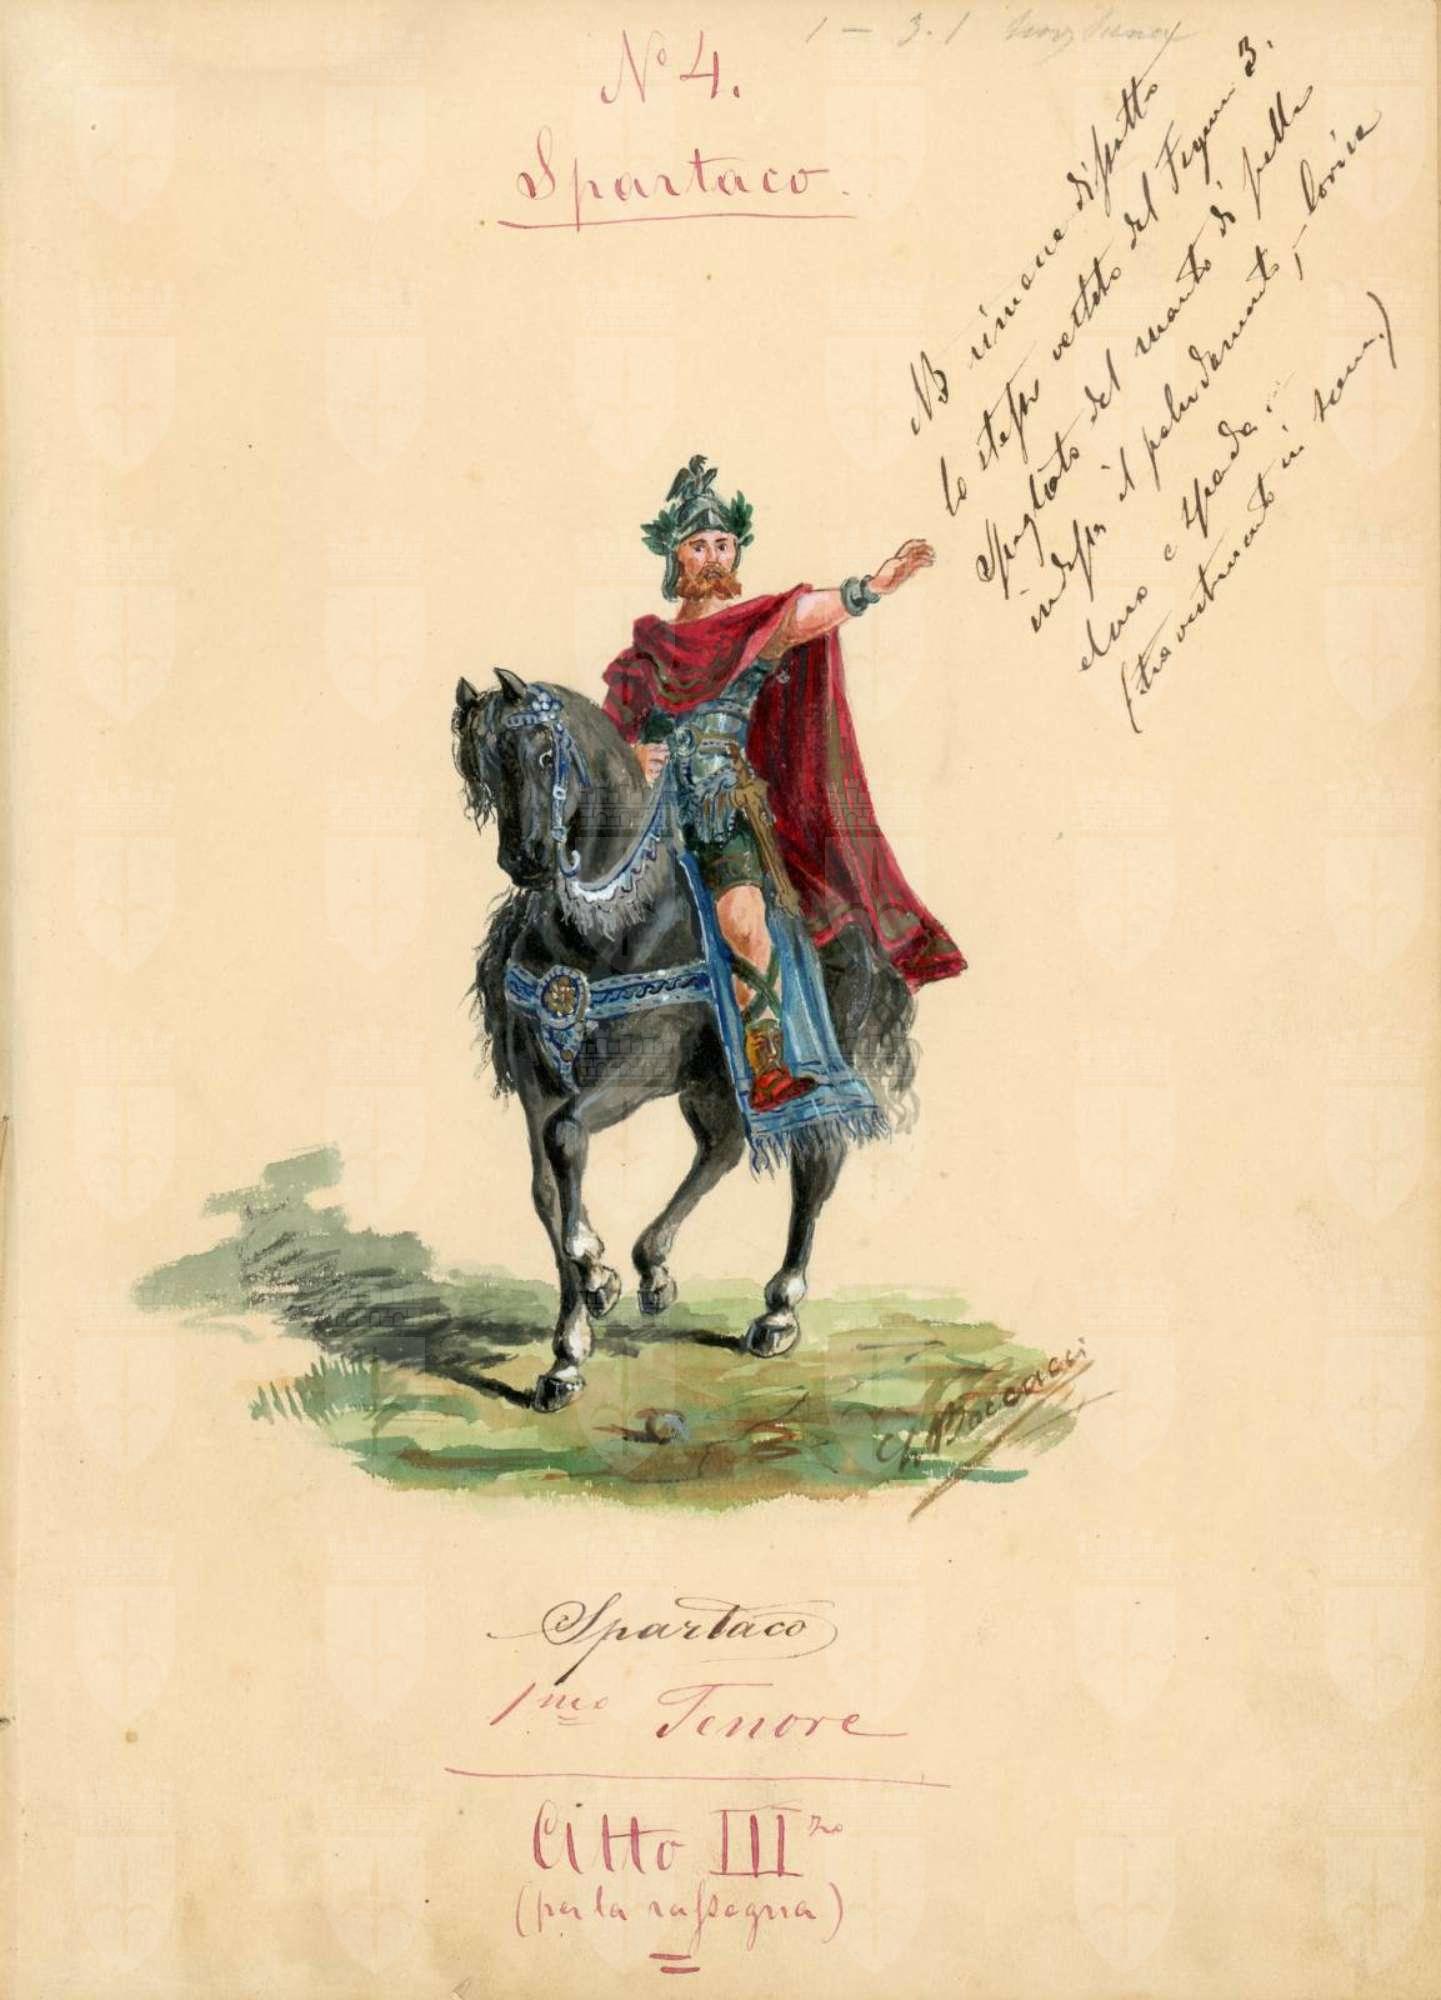 1 – 3.1
Nº 4.
Spartaco.
NB rimane disotto
lo stesso vestito del Figur. 3.
Spogliato del manto di pelle
indossa il paludamento, lorica
elmo e spada.
(travestimento in scena.)
Ch Boccacci
Spartaco
1mo Tenore
Atto IIIzo
(per la rassegna)